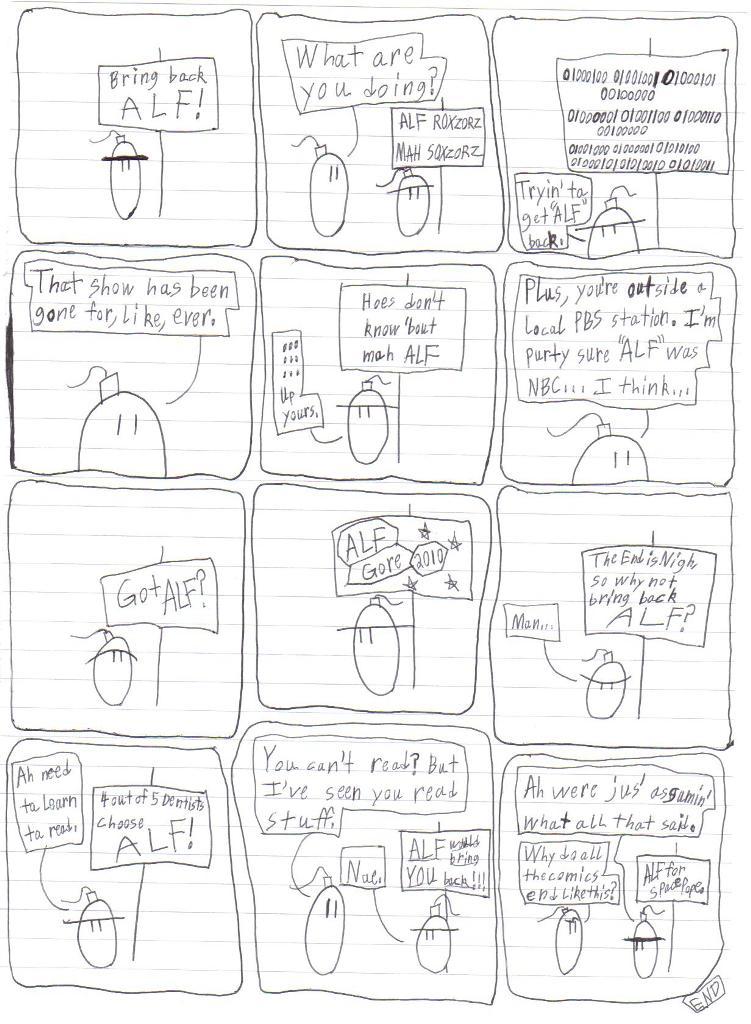 Bring back
ALF!
What are
you doing?
ALF ROXZORZ
MAH SOXZORZ
00100000
00100000
Tryin' to
get "ALF"
back.
That show has been
gone for, like, ever.
Hoes don't
know 'bout
mah ALF
...
...
...
Up
yours.
Plus, you're outside a
local PBS station. I'm
purty sure "ALF" was
NBC... I think...
Got ALF?
ALF
Gore 2010
The End is Nigh
so why not
bring back
ALF?
Man...
Ah need
to learn
ta read.
4 out of 5 Dentists
choose
ALF!
You can't read? But
I've seen you read
stuff.
ALF would
bring
YOU back!!!
Nue.
Ah were jus' assumin'
what all that said.
Why do all
the comics
end like this?
ALF for
Space Pope.
END